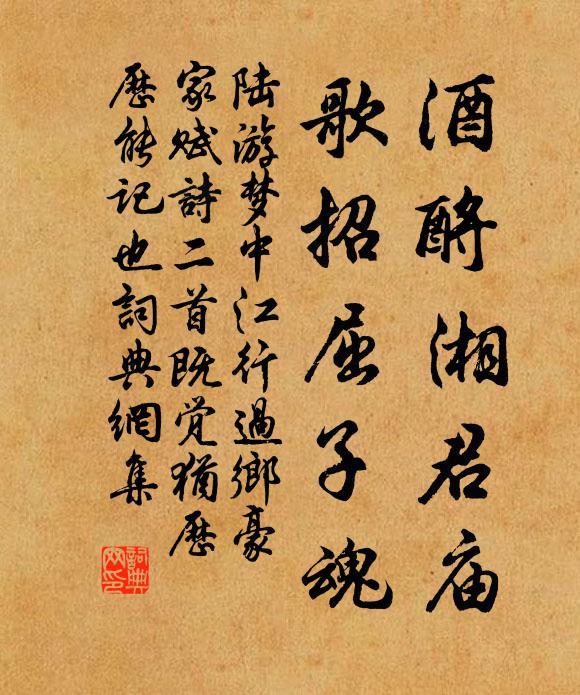 酒酹湘君庙
歌招屈子魂
陆游梦中江行過鄉豪
家赋詩二首既觉猶歷
歷能记也詞典網集
詞典網印